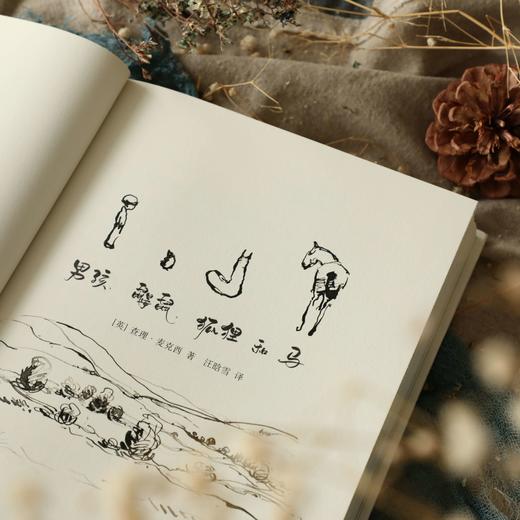 男孩、鼹鼠、狐狸和马
[英] 查理·麦克西 著 汪晗雪 译